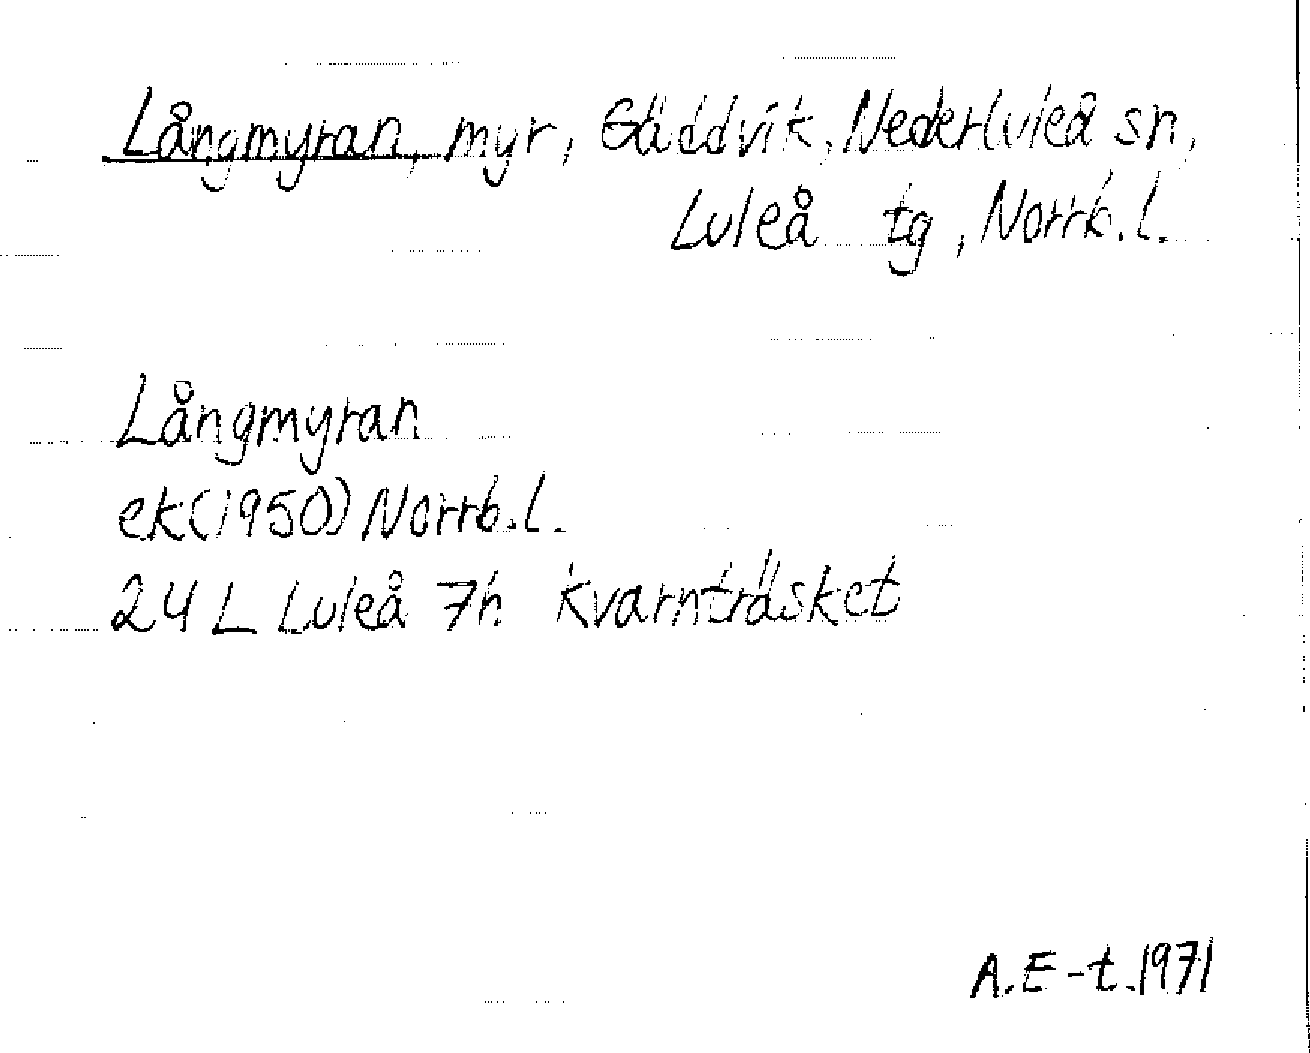 Långmyran, myr, Gäddvik, Nederluleå sn,
Luleå tg, Norrb.l.
Långmyran
ek(1950) Norrb.l.
24 L Luleå 7h Kvarnträsket
A.E-t.1971